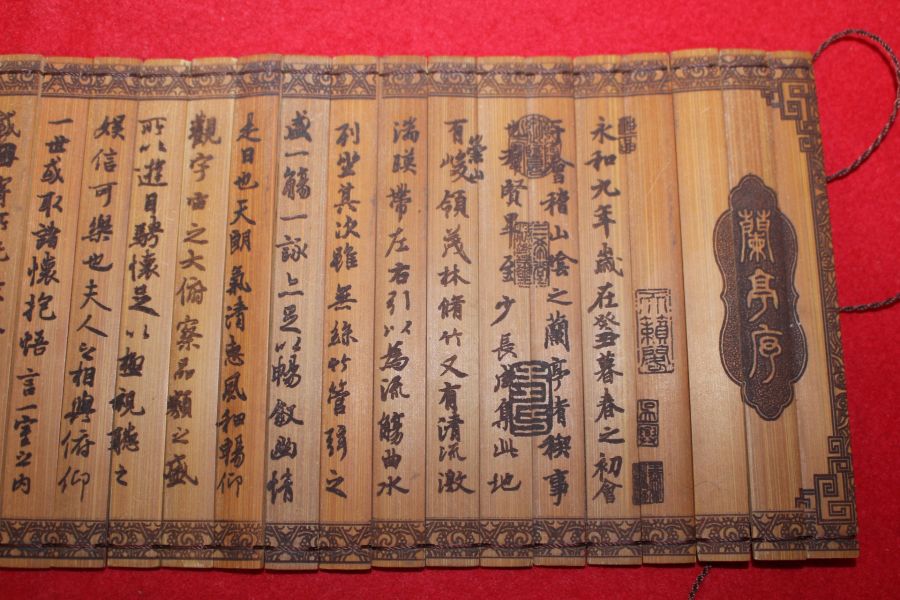 蘭亭序
永和九年歲在癸丑暮春之初會
于會稽山陰之蘭亭脩稧事
也群賢畢至少長咸集此地
有崇山峻領茂林脩竹又有清流激
湍暎帶左右引以為流觴曲水
列坐其次雖無絲竹管弦之
盛一觴一詠亦足以暢敘幽情
是日也天朗氣清惠風和暢仰
觀宇宙之大俯察品類之盛
所以遊目騁懷足以極視聽之
娛信可樂也夫人之相與俯仰
一世或取諸懷抱悟言一室之內
或因寄所